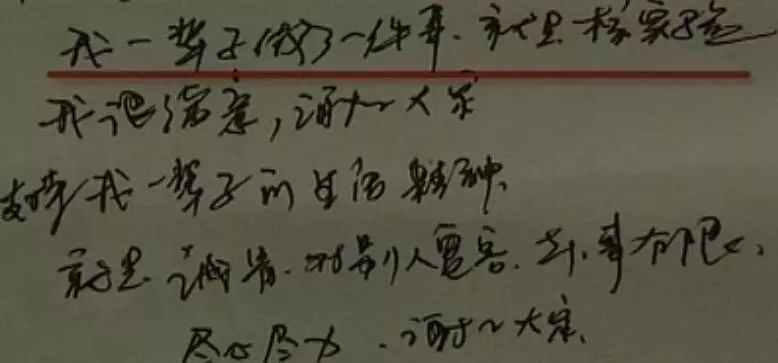 我一辈子做了一件事.就是核实验
我很满意,谢谢大家
支持我一辈子的生活精神.
就是诚恳.对别人宽容.对事有限心,
尽心尽力.谢谢大家.